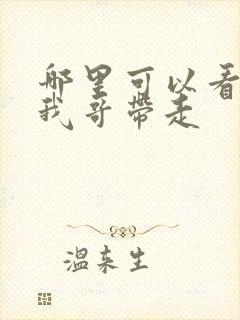 哪里可以看
我哥带走
温来生